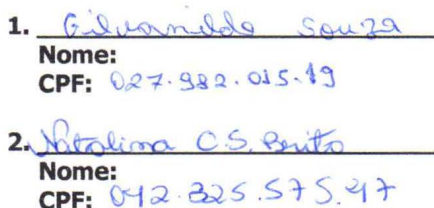 1. Gilvanildo Souza
Nome:
CPF: 027.982.015.19
2. Natalina C.S. Brito
Nome:
CPF: 042.325.575.47